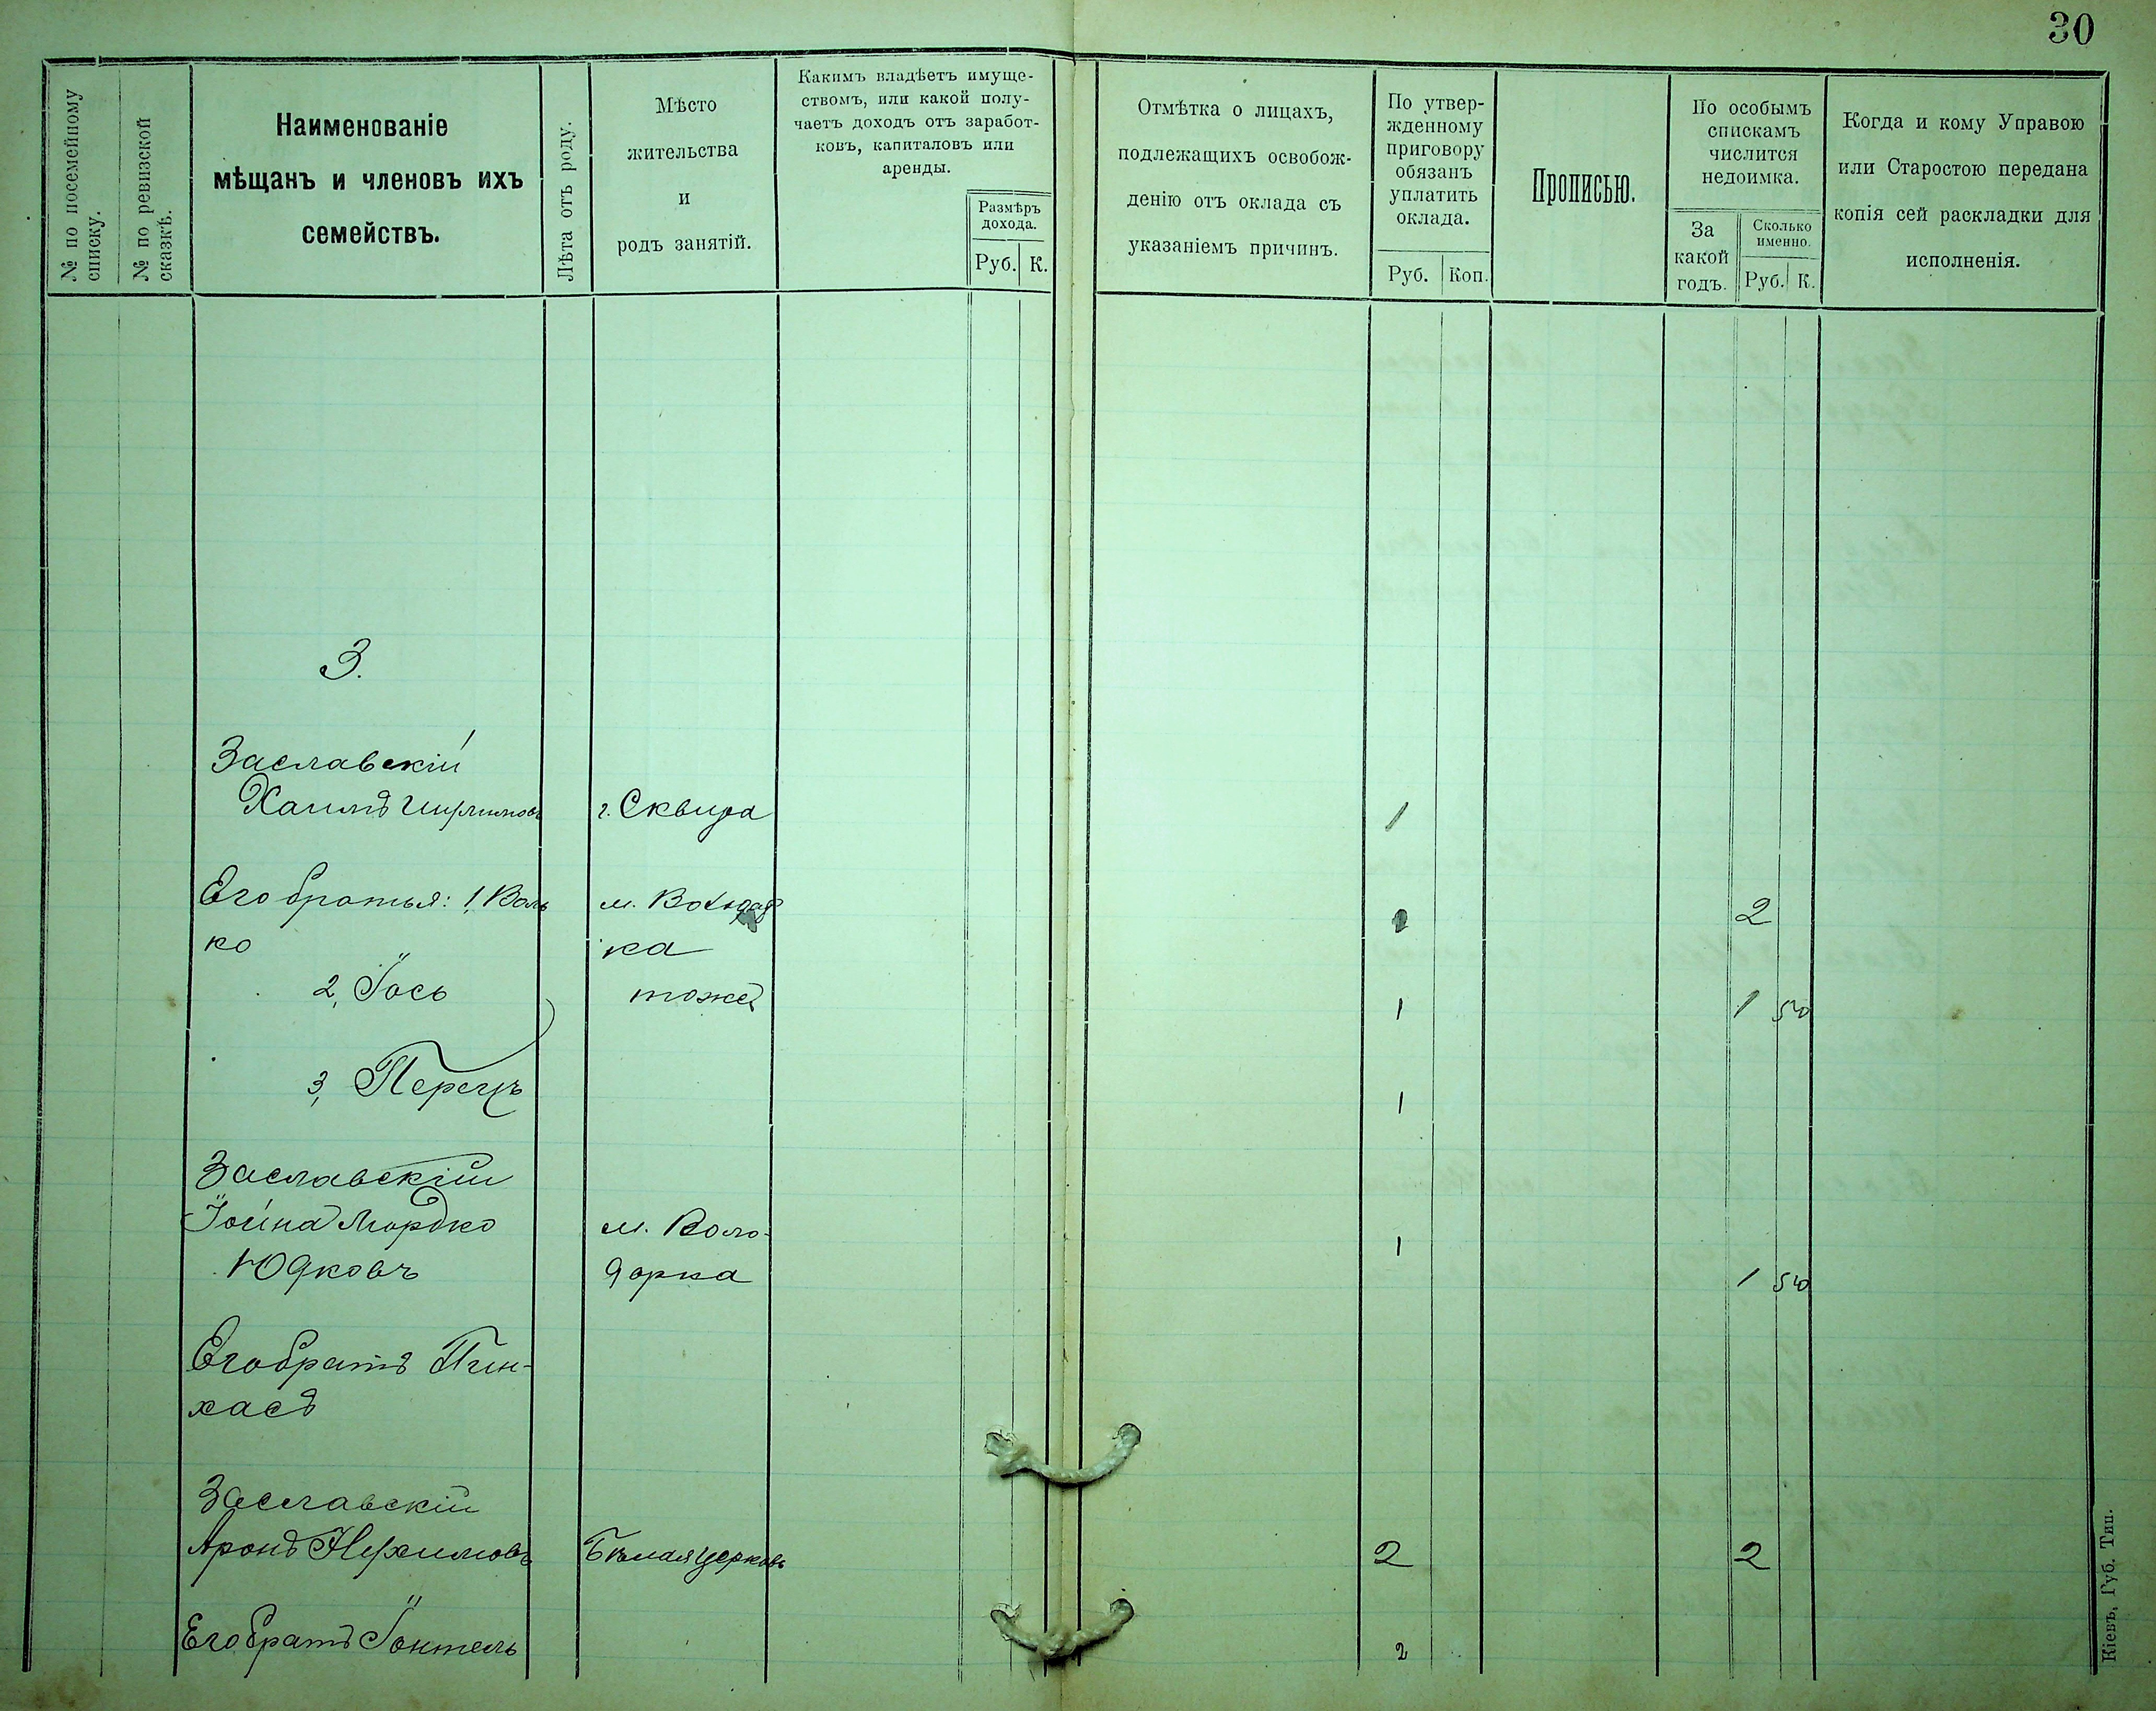 30
№ по посемейному
списку.
№ по ревизской
сказкѣ.
Наименованіе
мѣщанъ и членовъ ихъ
семействъ.
Лѣта отъ роду.
Мѣсто
жительства
и
родъ занятій.
Какимъ владѣетъ имуще-
ствомъ, или какой полу-
чаетъ доходъ отъ заработ-
ковъ, капиталовъ или
аренды.
Размѣръ
дохода.
Руб. К.
Отмѣтка о лицахъ,
подлежащихъ освобож-
денію отъ оклада съ
указаніемъ причинъ.
По утвер-
жденному
приговору
обязанъ
уплатить
оклада.
Руб. Коп.
Прописью.
По особымъ
спискамъ
числится
недоимка.
За
какой
годъ.
Сколько
именно.
Руб. К.
Когда и кому Управою
или Старостою передана
копія сей раскладки для
исполненія.
З.
Заславскій
Хаимъ г. Сквира 1
Его братья: 1, Воль м. Володар 2
ко ка
2, Іось тоже 1 1 50
3, Перецъ 1
Заславскій
Іойна Мордко м. Воло- 1
Юдковъ дарка 1 50
Его братъ Пин-
хасъ
Заславскій
Аронъ Нухимовъ Бѣлая Церковь 2 2
Его братъ 2
Кіевъ, Губ. Тип.